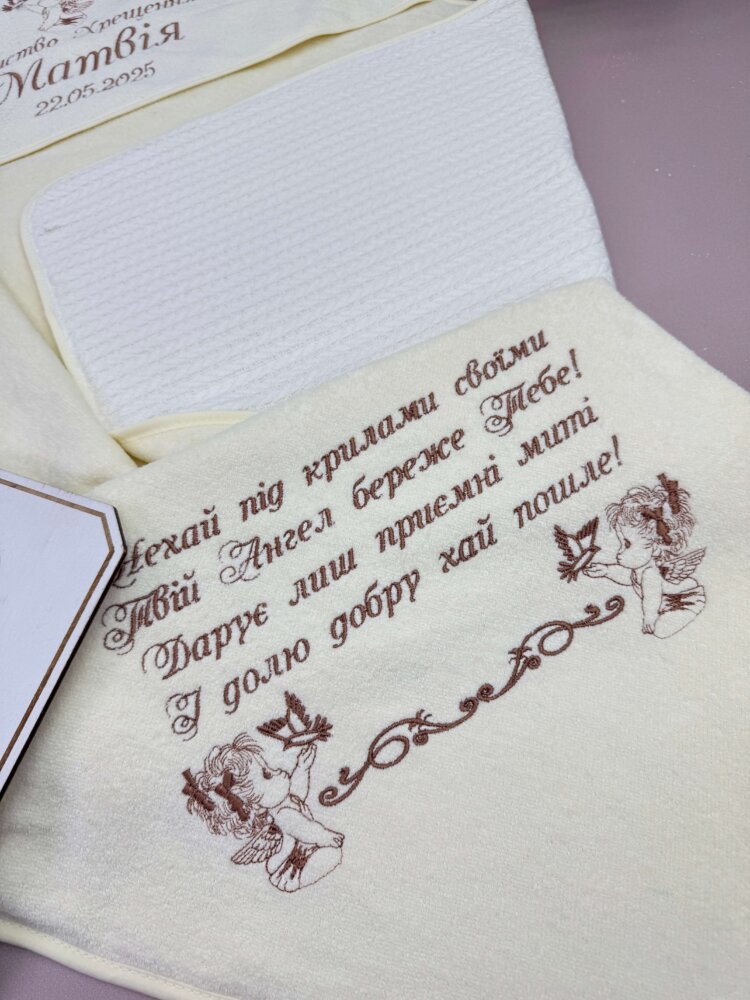 Хрещення
Матвія
22.05.2025
Нехай під крилами своїми
Твій Ангел береже Тебе!
Дарує лиш приємні миті
І долю добру хай пошле!